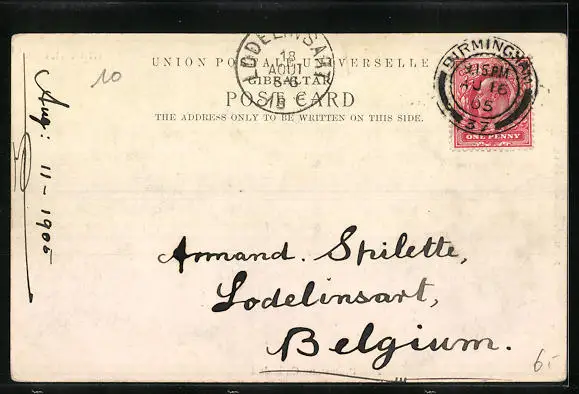 UNION POSTALE UNIVERSELLE
GIBRALTAR
POST CARD
THE ADDRESS ONLY TO BE WRITTEN ON THIS SIDE.
LODELINSART
18
AOUT
8-
BIRMINGHAM
15 PM
AU 16
05
37
ONE PENNY
10
Aug: 11-1905
Armand. Spilette,
Lodelinsart,
Belgium.
6.-